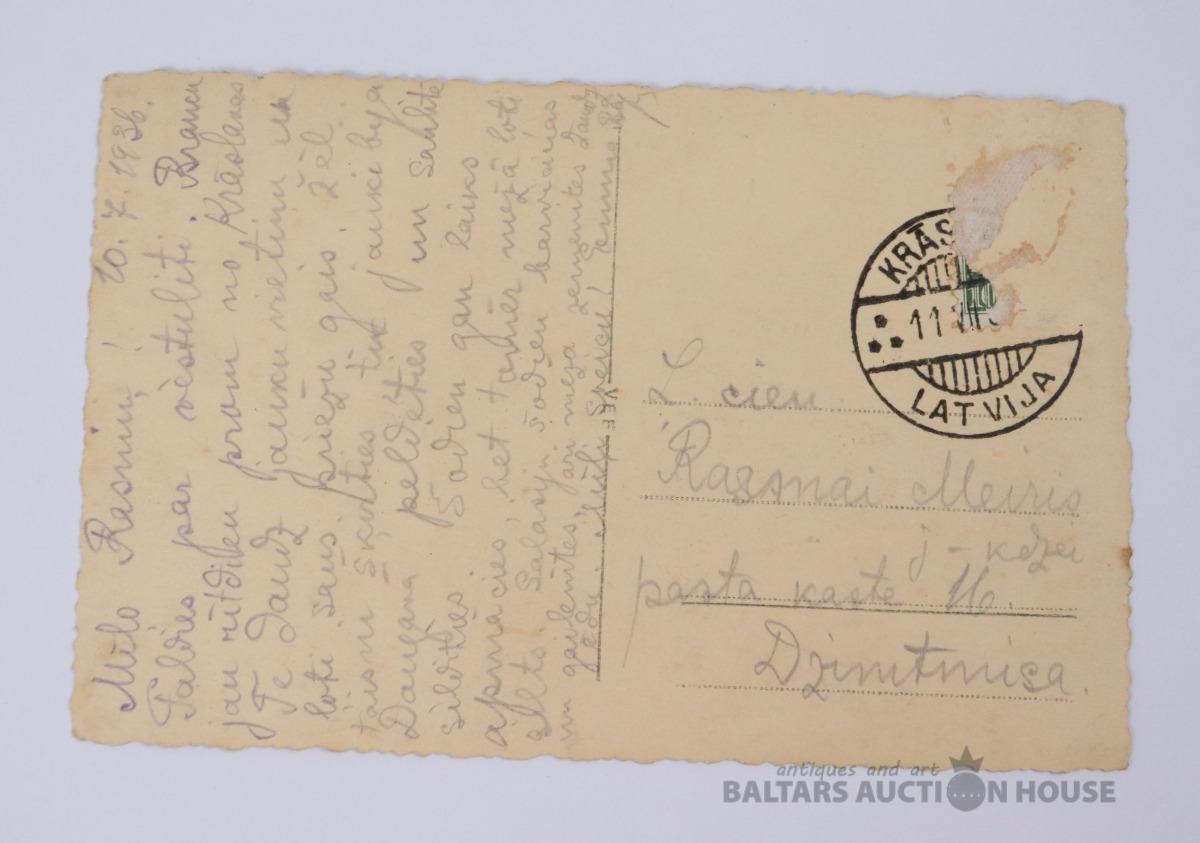 10. 7. 1936.
Mīļo Rasniņ!
Paldies par vēstulīti. Braucu
jau rītdien prom no Krāslavas
Te Daudz jauku vietiņu un
ļoti sauss priežu gais. Žēl
taisni šķirties, tik jauki bija
Daugavā peldēties un saulītē
sildīties. Šodien gan laiks
apmācies, bet tomēr mežā ļoti
silts. Salasīju šodien
un gailenītes, arī meža zemenītes daudz
Sveicu!
VEF
Z. cien.
Raesnai Meiris
j-kdzei
pasta kaste 16.
Dzimtmisa.
KRĀS
11 VII
LATVIJA
antiques and art
BALTARS AUCTION HOUSE